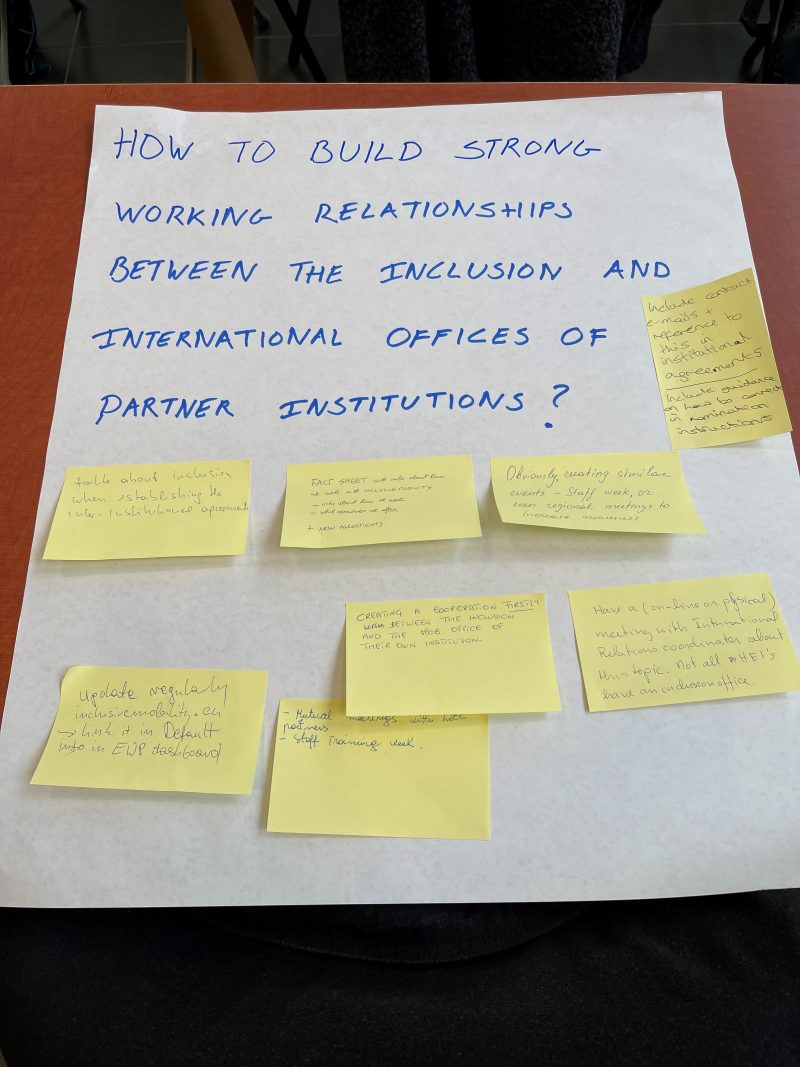 HOW TO BUILD STRONG
WORKING RELATIONSHIPS
BETWEEN THE INCLUSION AND
INTERNATIONAL OFFICES OF
PARTNER INSTITUTIONS?
Include contact
e-mails +
reference to
this in
institutional
agreements
Include guidance
on how to connect
in nomination
instructions
talk about inclusion
when establishing the
inter-institutional agreements
FACT SHEET with info about how
we work with INCLUSIVE MOBILITY
- info about how we work
- what resources we offer
+ NON AGREEMENTS
Obviously, creating similar
events - Staff week, or
even regional meetings to
increase awareness
CREATING A COOPERATION FIRSTLY
BETWEEN THE INCLUSION
AND THE MOB. OFFICE OF
THEIR OWN INSTITUTION.
Have a (on-line or physical)
meeting with International
Relations coordinator about
this topic. Not all HEI's
have an inclusion office.
Update regularly
inclusivemobility.eu
→ link it in Default
info in EWP dashboard
- Mutual meetings with both
partners
- Staff Training week.